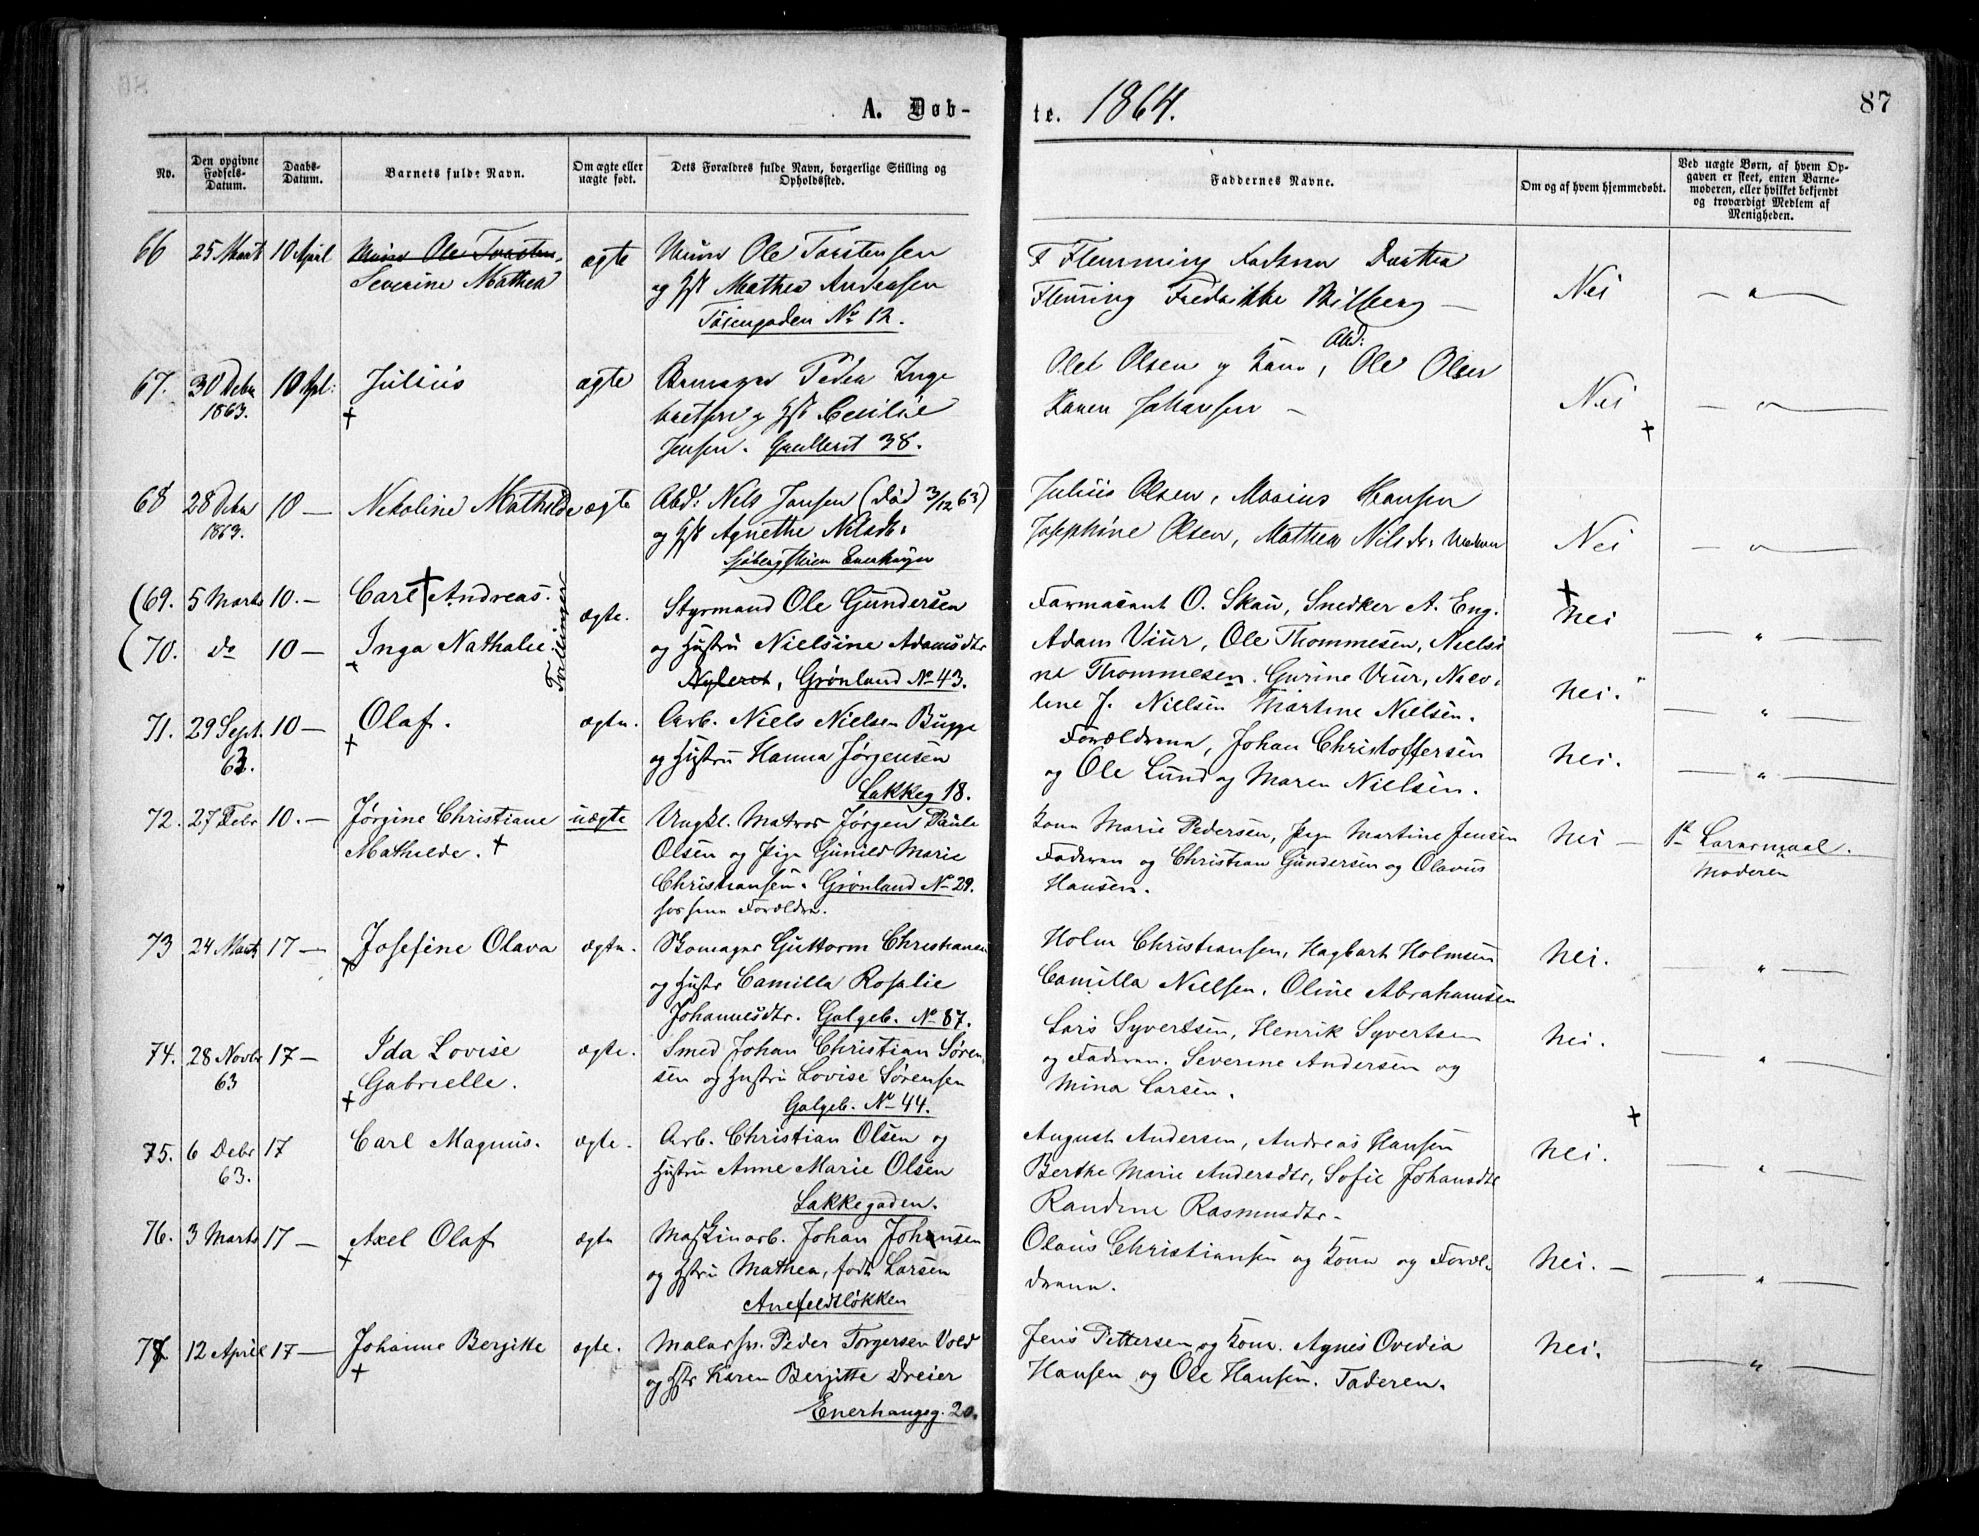 A. Døb-
te. 1864.
87
No.
Den opgivne Fødsels-Datum.
Daabs-Datum.
Barnets fulde Navn.
Om ægte eller uægte født.
Dets Forældres fulde Navn, borgerlige Stilling og Opholdssted.
Faddernes Navne.
Om og af hvem hjemmedøbt.
Ved uægte Børn, af hvem Opgaven er skeet, enten Barnemoderen, eller hvilket bekjendt og troværdigt Medlem af Menigheden.
66 25 Marts 10 April Severine Mathea ægte
Murer Ole Torstensen
og Hst Mathea Andersen
Tøiengaden No 12.
F Flemming Dorthea
Fleming Fredrikke
Nei
67. 30 Debr 1863. 10 Apl: Julius ægte
Peder Inge
bretsen og Hst Cecilie
Jensen. 38.
Olet Olsen og Kone, Arbd: Ole Olsen
Karen Johansen –
Nei
68 28 Debr 1863. 10 — Nekoline Mathilde ægte
Abd: Nels Jansen (død 3/12 63)
og Hst Agnethe Nilsdr:
Julius Olsen, Marius Hansen
Josephine Olsen, Mathea Nilsdr:
Nei
69. 5 Marts 10. — Carl Andreas.
70. do 10 — Inga Nathalie
Tvillinger
ægte.
Styrmand Ole Gundersen
og Hustru Nielsine Adamsdtr
Nyleret, Grønland No 43.
Farmacent O. Skau, Snedker A. Eng.
Adam Viur, Ole Thommesen, Nielsi
ne Thommesen. Gurine Viur, Nico-
line J. Nielsen Martine Nielsen.
Nei
Nei.
71. 29 Sept. 63. 10 — Olaf. ægte.
Arb. Niels Nielsen Bugge
og Hustru Hanna Jørgensen
Lakkeg 18.
Forældrene, Johan Christoffersen
og Ole Lund og Maren Nielsen.
Nei.
72. 27 Febr 10. — Jørgine Christiane
Mathilde. uægte
Ungkl. Matros Jørgen Paule
Olsen og Pige Gunild Marie
Christiansen. Grønland No 29.
hos sine Forældre.
Kone Marie Pedersen, Pige Martine Jensen
Faderen og Christian Gundersen og Olavus
Hansen.
Nei —
1ste Leiermaal.
Moderen
73 24 Marts 17 — Josefine Olava ægte.
Skomager Guttorm Christiansen
og Hustr Camilla Rosalie
Johannesdtr. Galgeb. No 87.
Holm Christiansen, Hagbart Holmsen
Camilla Nielsen, Oline Abrahamsen
Nei.
74. 28 Novbr 63 17 — Ida Lovise
Gabrielle. ægte.
Smed Johan Christian Søren-
sen og Hustru Lovise Sørensen
Galgeb. No 44.
Lars Syvertsen, Henrik Syvertsen
og Faderen. Severine Andersen og
Mina Larsen.
Nei.
75. 6 Debr 63. 17 Carl Magnus. ægte.
Arb. Christian Olsen og
Hustru Anne Marie Olsen
Lakkegaden.
August Andersen, Andreas Hansen
Berthe Marie Andersdtr, Sofie Johansdtr
Randine Rasmusdtr.
Nei.
76. 3 Marts 17 — Axel Olaf ægte
Maskinarb. Johan Johansen
og Hstru Mathea, født Larsen
Anefeldtløkken
Olaus Christiansen og Kone og Foræl-
drene.
Nei. —
77 12 April 17 — Johanne Berjitte ægte.
Malersv. Peder Torgersen Vold
og Hstr Karen Berjitte Dreier
Enerhaugsg. 20.
Jens Pettersen og Kone. Agnes Ovedia
Hansen og Ole Hansen. Faderen.
Nei.